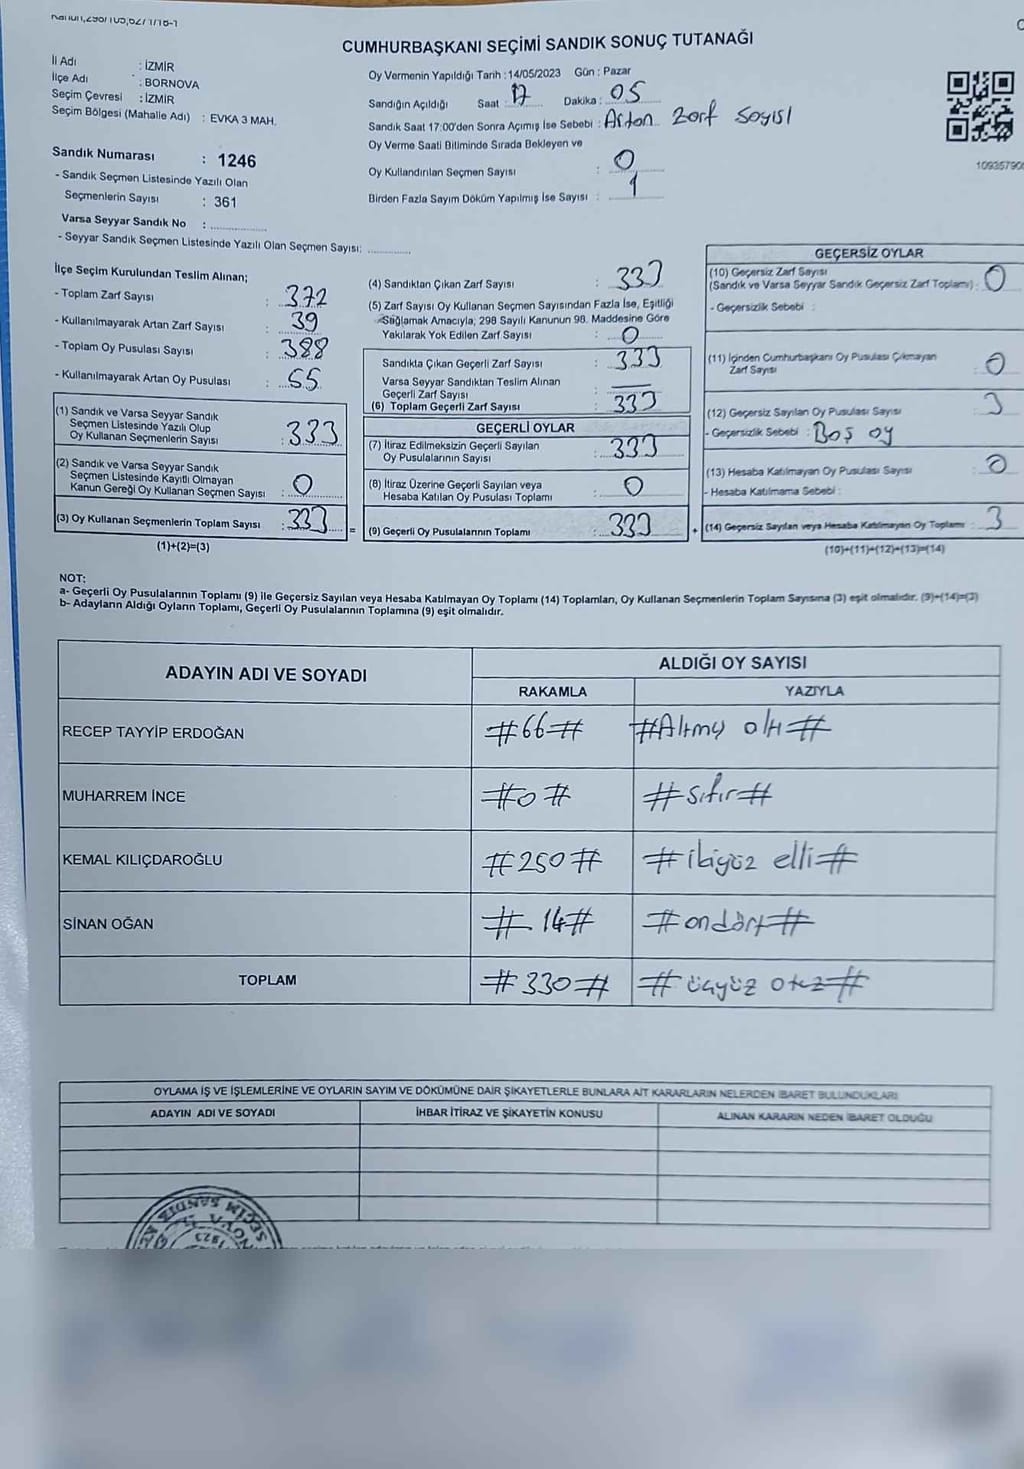 CUMHURBAŞKANI SEÇİMİ SANDIK SONUÇ TUTANAĞI
İl Adı : İZMİR
İlçe Adı : BORNOVA
Seçim Çevresi : İZMİR
Seçim Bölgesi (Mahalle Adı) : EVKA 3 MAH.
Oy Vermenin Yapıldığı Tarih : 14/05/2023 Gün : Pazar
Sandığın Açıldığı Saat : 17 Dakika : 05
Sandık Saat 17:00'den Sonra Açımış İse Sebebi : Artan Zarf Sayısı
Oy Verme Saati Bitiminde Sırada Bekleyen ve
Oy Kullandırılan Seçmen Sayısı : 0
Birden Fazla Sayım Döküm Yapılmış İse Sayısı : 1
Sandık Numarası : 1246
- Sandık Seçmen Listesinde Yazılı Olan
Seçmenlerin Sayısı : 361
Varsa Seyyar Sandık No :
- Seyyar Sandık Seçmen Listesinde Yazılı Olan Seçmen Sayısı:
İlçe Seçim Kurulundan Teslim Alınan;
- Toplam Zarf Sayısı : 372
- Kullanılmayarak Artan Zarf Sayısı : 39
- Toplam Oy Pusulası Sayısı : 388
- Kullanılmayarak Artan Oy Pusulası : 55
(1) Sandık ve Varsa Seyyar Sandık
Seçmen Listesinde Yazılı Olup
Oy Kullanan Seçmenlerin Sayısı : 333
(2) Sandık ve Varsa Seyyar Sandık
Seçmen Listesinde Kayıtlı Olmayan
Kanun Gereği Oy Kullanan Seçmen Sayısı : 0
(3) Oy Kullanan Seçmenlerin Toplam Sayısı : 333 =
(1)+(2)=(3)
(4) Sandıktan Çıkan Zarf Sayısı : 333
(5) Zarf Sayısı Oy Kullanan Seçmen Sayısından Fazla İse, Eşitliği
Sağlamak Amacıyla; 298 Sayılı Kanunun 98. Maddesine Göre
Yakılarak Yok Edilen Zarf Sayısı : 0
Sandıkta Çıkan Geçerli Zarf Sayısı : 333
Varsa Seyyar Sandıktan Teslim Alınan
Geçerli Zarf Sayısı :
(6) Toplam Geçerli Zarf Sayısı : 333
GEÇERLİ OYLAR
(7) İtiraz Edilmeksizin Geçerli Sayılan
Oy Pusulalarının Sayısı : 333
(8) İtiraz Üzerine Geçerli Sayılan veya
Hesaba Katılan Oy Pusulası Toplamı : 0
(9) Geçerli Oy Pusulalarının Toplamı : 333 +
GEÇERSİZ OYLAR
(10) Geçersiz Zarf Sayısı
(Sandık ve Varsa Seyyar Sandık Geçersiz Zarf Toplamı) : 0
- Geçersizlik Sebebi :
(11) İçinden Cumhurbaşkanı Oy Pusulası Çıkmayan
Zarf Sayısı : 0
(12) Geçersiz Sayılan Oy Pusulası Sayısı : 3
- Geçersizlik Sebebi : Boş oy
(13) Hesaba Katılmayan Oy Pusulası Sayısı : 0
- Hesaba Katılmama Sebebi :
(14) Geçersiz Sayılan veya Hesaba Katılmayan Oy Toplamı : 3
(10)+(11)+(12)+(13)=(14)
NOT:
a- Geçerli Oy Pusulalarının Toplamı (9) ile Geçersiz Sayılan veya Hesaba Katılmayan Oy Toplamı (14) Toplamları, Oy Kullanan Seçmenlerin Toplam Sayısına (3) eşit olmalıdır. (9)+(14)=(3)
b- Adayların Aldığı Oyların Toplamı, Geçerli Oy Pusulalarının Toplamına (9) eşit olmalıdır.
ADAYIN ADI VE SOYADI ALDIĞI OY SAYISI
RAKAMLA YAZIYLA
RECEP TAYYİP ERDOĞAN #66# #Altmış altı#
MUHARREM İNCE #0# #sıfır#
KEMAL KILIÇDAROĞLU #250# #ikiyüz elli#
SİNAN OĞAN #14# #ondört#
TOPLAM #330# #üçyüz otuz#
OYLAMA İŞ VE İŞLEMLERİNE VE OYLARIN SAYIM VE DÖKÜMÜNE DAİR ŞİKAYETLERLE BUNLARA AİT KARARLARIN NELERDEN İBARET BULUNDUKLARI
ADAYIN ADI VE SOYADI İHBAR İTİRAZ VE ŞİKAYETİN KONUSU ALINAN KARARIN NEDEN İBARET OLDUĞU